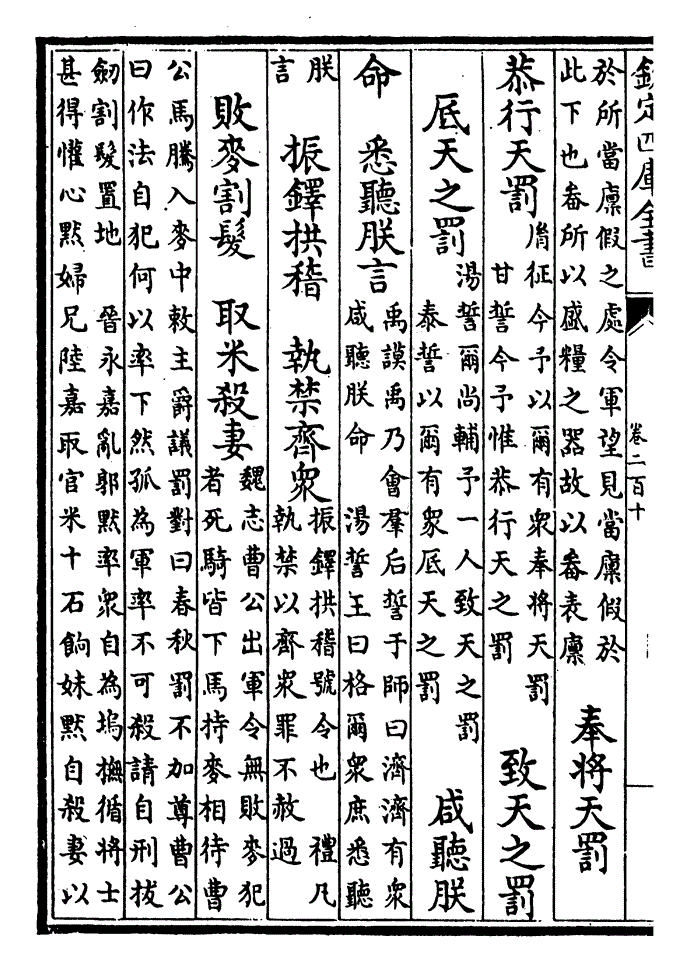 欽定四庫全書 卷二百十
於所當廩假之處令軍望見當廩假於
此下也畚所以盛糧之器故以畚表廩
奉將天罰
恭行天罰
胤征今予以爾有衆奉將天罰
甘誓今予惟恭行天之罰
致天之罰
厎天之罰
湯誓爾尚輔予一人致天之罰
泰誓以爾有衆厎天之罰
咸聽朕
命 悉聽朕言
禹謨禹乃會羣后誓于師曰濟濟有衆
咸聽朕命 湯誓王曰格爾衆庶悉聽
朕
言
振鐸拱稽 執禁齊衆
振鐸拱稽號令也 禮凡
執禁以齊衆罪不赦過
敗麥割髮 取米殺妻
魏志曹公出軍令無敗麥犯
者死騎皆下馬持麥相待曹
公馬騰入麥中敕主爵議罰對曰春秋罰不加尊曹公
曰作法自犯何以率下然孤為軍率不可殺請自刑拔
劒割髮置地 晉永嘉亂郭默率衆自為塢撫循將士
甚得懽心默婦兄陸嘉取官米十石餉妹默自殺妻以